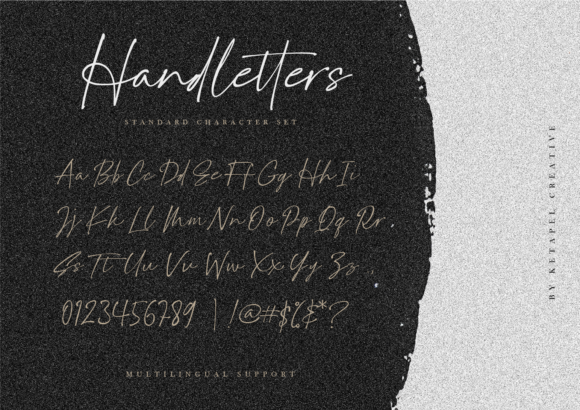 Handletters
STANDARD CHARACTER SET
Aa Bb Cc Dd Ee Ff Gg Hh Ii
Jj Kk Ll Mm Nn Oo Pp Qq Rr .
Ss Tt Uu Vv Ww Xx Yy Zz ,
0123456789 | !@#$%&*?
MULTILINGUAL SUPPORT
BY KETAPEL CREATIVE